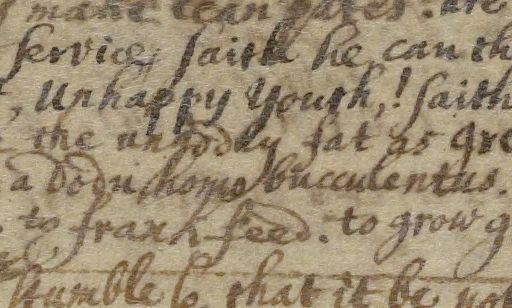 make lean
service, saith he, can th
, Unhappy Youth,! saith
the ungodly fat as gre
a body homo bucculentus.
to frank feed. to grow g
humble so that it be not